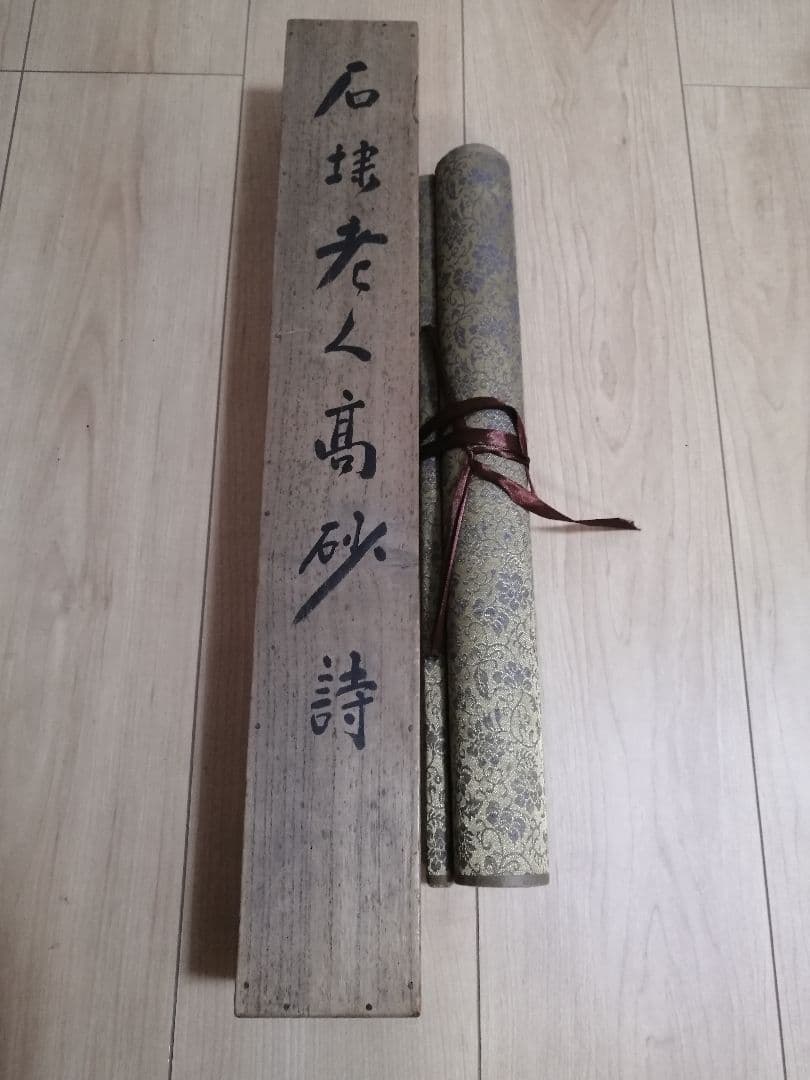 石埭老人高砂詩